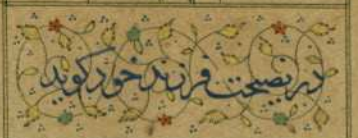 در نصیحت فرزند خود گوید